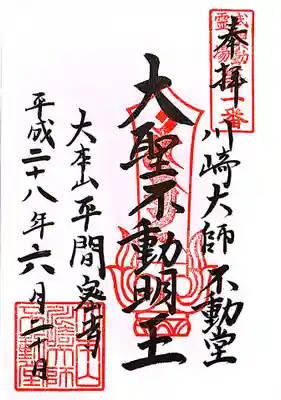 奉拝
川崎大師 不動堂
大聖不動明王
大本山 平間密寺
平成二十八年六月二十日